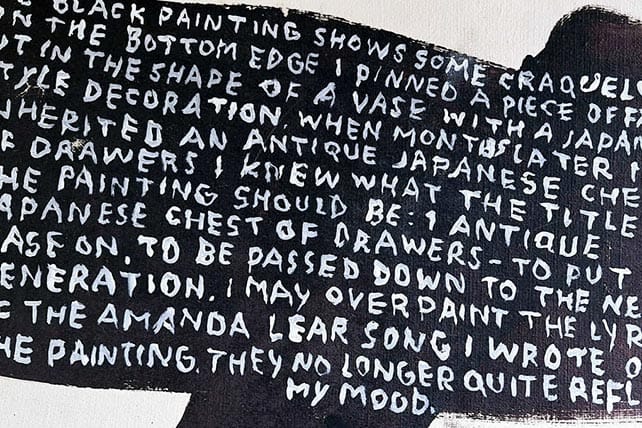 BLACK PAINTING SHOWS SOME CRAQUEL
ON THE BOTTOM EDGE I PINNED A PIECE OF FA
UT IN THE SHAPE OF A VASE WITH A JAPAN
TYLE DECORATION. WHEN MONTHS LATER I
NHERITED AN ANTIQUE JAPANESE CHE
F DRAWERS I KNEW WHAT THE TITLE
HE PAINTING SHOULD BE: 1 ANTIQUE
APANESE CHEST OF DRAWERS - TO PUT
ASE ON. TO BE PASSED DOWN TO THE NE
ENERATION. I MAY OVERPAINT THE LYR
THE AMANDA LEAR SONG I WROTE O
HE PAINTING. THEY NO LONGER QUITE REFL
MY MOOD.